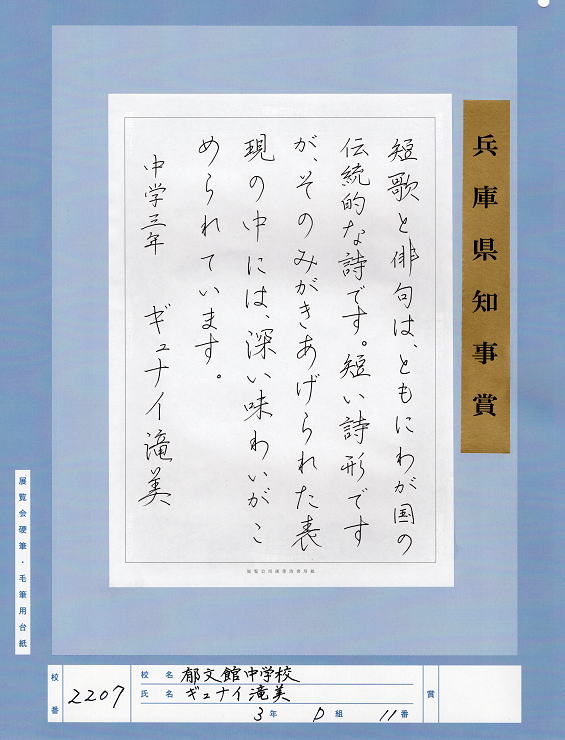 兵庫県知事賞
短歌と俳句は、ともにわが国の
伝統的な詩です。短い詩形です
が、そのみがきあげられた表
現の中には、深い味わいがこ
められています。
中学三年 ギュナイ滝美
展覧会用硬筆清書用紙
展覧会硬筆・毛筆用台紙
校番 2207
校名 郁文館中学校
氏名 ギュナイ滝美
3年 D組 11番
賞